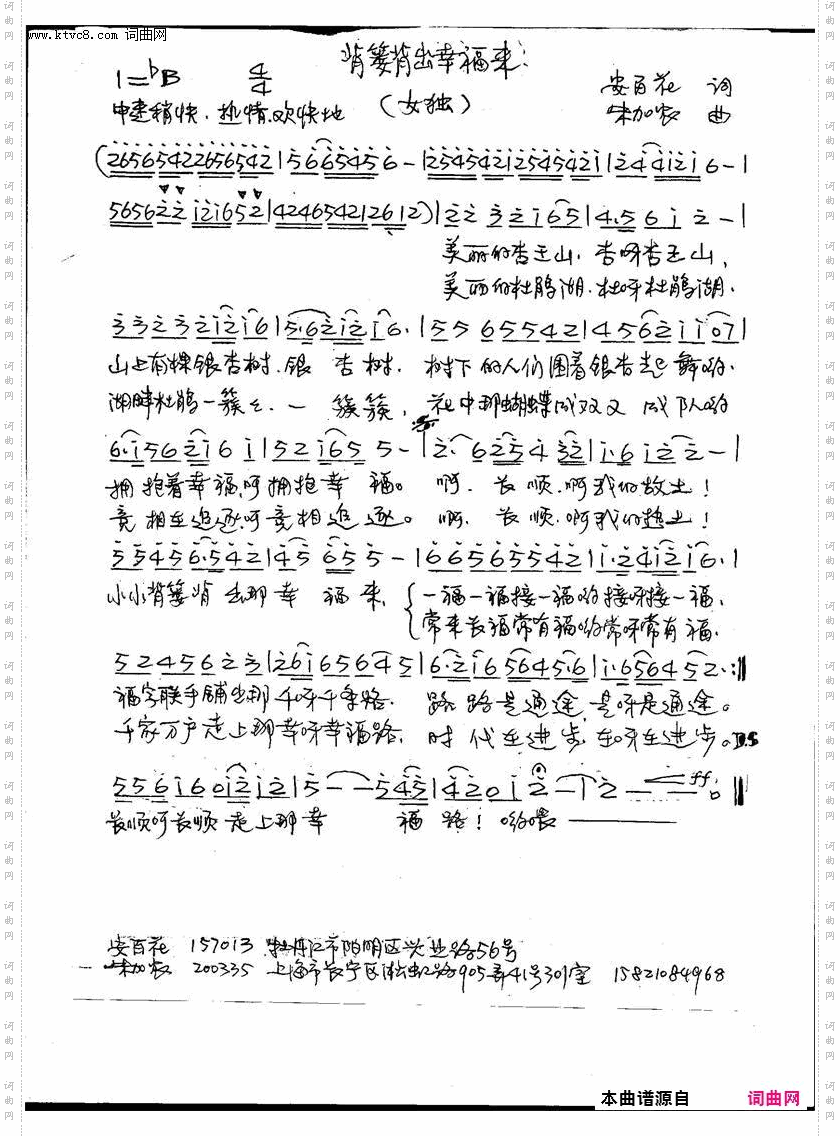 www.ktvc8.com 词曲网
背篓背出幸福来
1=bB 4/4
中速稍快、热情、欢快地 (女独)
安百花 词
朱加农 曲
(26565422656542|5665456-|2545421254542i|24412i6-|
565622i2i652|4246542i2612)|22 32i65|4.56i2-|
美丽的杏王山,杏呀杏王山,
美丽的杜鹃湖,杜呀杜鹃湖,
33232i2i6|5.62i2i6.|55655542|4562ii07|
山上有棵银杏树,银杏树,树下的人们围着银杏起舞哟,
湖畔杜鹃一簇簇,一簇簇,花中那蝴蝶成双又成队哟
6.i562i6i|52i655-|2.625432|i.6i22-|
拥抱着幸福呵拥抱幸福。啊,长顺,啊我们故土!
竞相在追逐呵竞相追逐。啊,长顺,啊我们热土!
55456.542|45655-|66565542|i.24i2i6.|
小小背篓背出那幸福来,一福一福接一福哟接呀接一福,
常来长福常有福哟常呀常有福,
5245623|26i656545|6.2i65645.6|i.656452.:‖
福字联手铺出那千呀千条路,路路是通途,是呀是通途。
千家万户走上那幸呀幸福路,时代在进步,在呀在进步。D.S
556i60i2i2|5--545|420i2-|2--ff0‖
长顺呵长顺走上那幸福路!哟喂
安百花 157013 牡丹江市阳明区兴业路56号
朱加农 200335 上海市长宁区淞虹路905弄41号301室 15821084968
本曲谱源自 词曲网